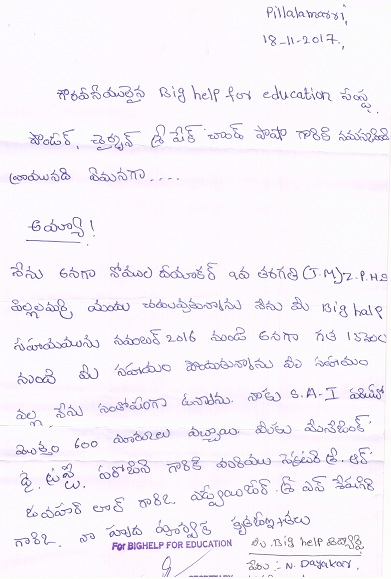 Pillalamarri,
18-11-2017,
గౌరవనీయులైన Big help for education సంస్థ
ఫౌండర్, చైర్మన్ శ్రీ షేక్ చాంద్ పాషా గారికి నమస్కరించి
వ్రాయునది ఏమనగా....
అయ్యా!
నేను అనగా నోముల దయాకర్ 9వ తరగతి (T.M) Z.P.H.S
పిల్లలమర్రి యందు చదువుతున్నాను నేను మీ Big help
సహాయమును నవంబర్ 2016 నుండి అనగా గత
నుండి మీ సహాయం పొందుతున్నాను మీ సహాయం
వల్ల నేను సంతోషంగా ఉన్నాను. నాకు S.A-I
మొత్తం 600 మార్కులు వచ్చాయి. మీకు మేనేజింగ్
ట్రస్టీ సరోజిని గారికి మరియు సెక్రటరీ డి. ఆర్
జవహర్ లాల్ గారికి. అడ్వైజర్ శ్రీ ఎన్
గారికి. నా హృదయ పూర్వక కృతజ్ఞతలు
For BIGHELP FOR EDUCATION
మీ Big help విద్యార్థి
పేరు :- N. Dayakar,
SECRETARY